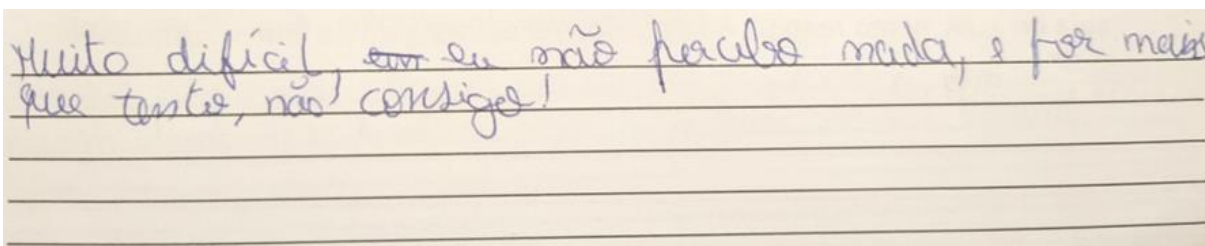 Muito difícil, eu não percebo nada, e por mais
que tento, não consigo!